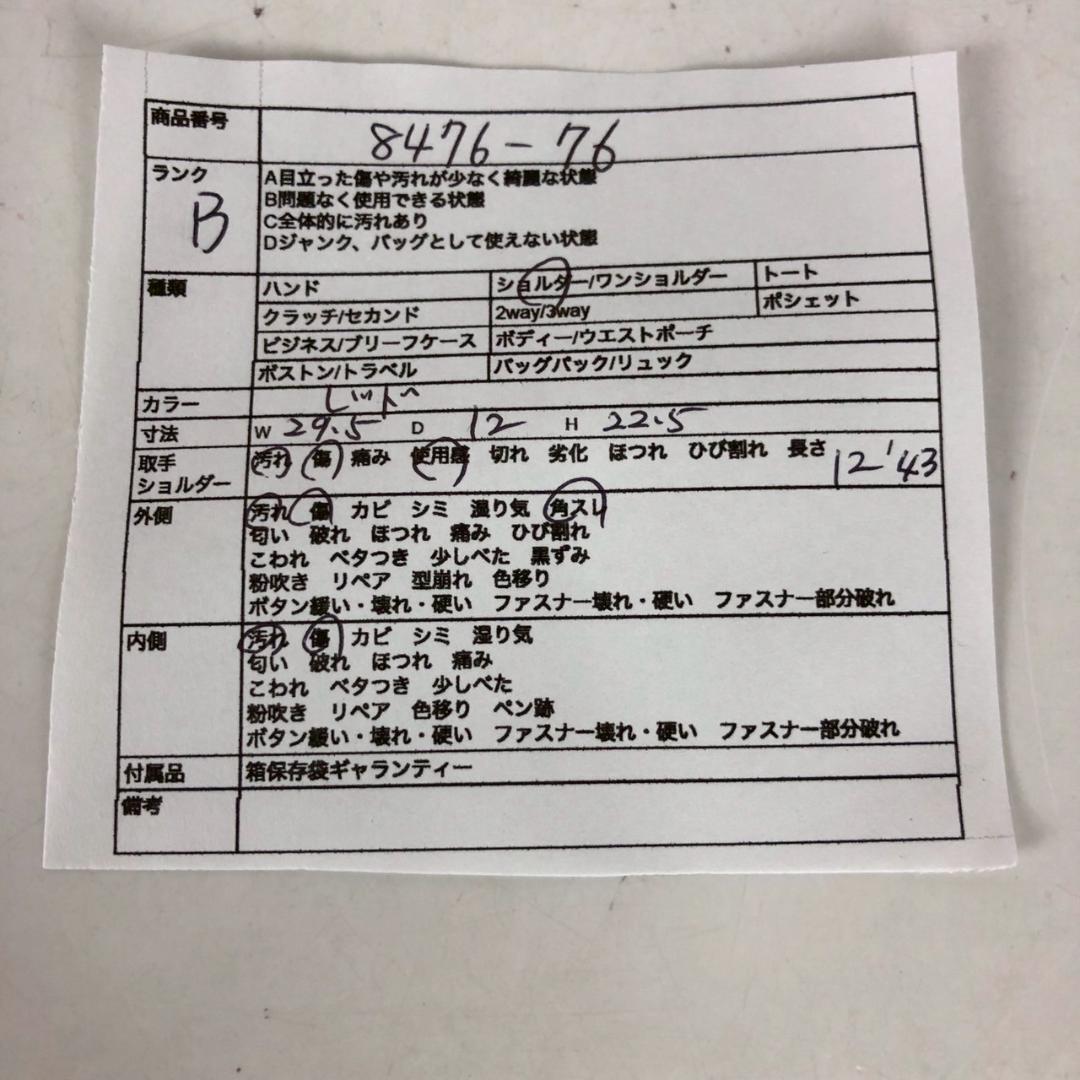 商品番号 8476-76
ランク B
A目立った傷や汚れが少なく綺麗な状態
B問題なく使用できる状態
C全体的に汚れあり
Dジャンク、バッグとして使えない状態
種類 ハンド ショルダー/ワンショルダー トート
クラッチ/セカンド 2way/3way ポシェット
ビジネス/ブリーフケース ボディー/ウエストポーチ
ボストン/トラベル バッグパック/リュック
カラー レッド
寸法 W 29.5 D 12 H 22.5
取手 汚れ 傷 痛み 使用感 切れ 劣化 ほつれ ひび割れ 長さ 12'43
ショルダー
外側 汚れ 傷 カビ シミ 湿り気 角スレ
匂い 破れ ほつれ 痛み ひび割れ
こわれ ベタつき 少しべた 黒ずみ
粉吹き リペア 型崩れ 色移り
ボタン緩い・壊れ・硬い ファスナー壊れ・硬い ファスナー部分破れ
内側 汚れ 傷 カビ シミ 湿り気
匂い 破れ ほつれ 痛み
こわれ ベタつき 少しべた
粉吹き リペア 色移り ペン跡
ボタン緩い・壊れ・硬い ファスナー壊れ・硬い ファスナー部分破れ
付属品 箱保存袋ギャランティー
備考